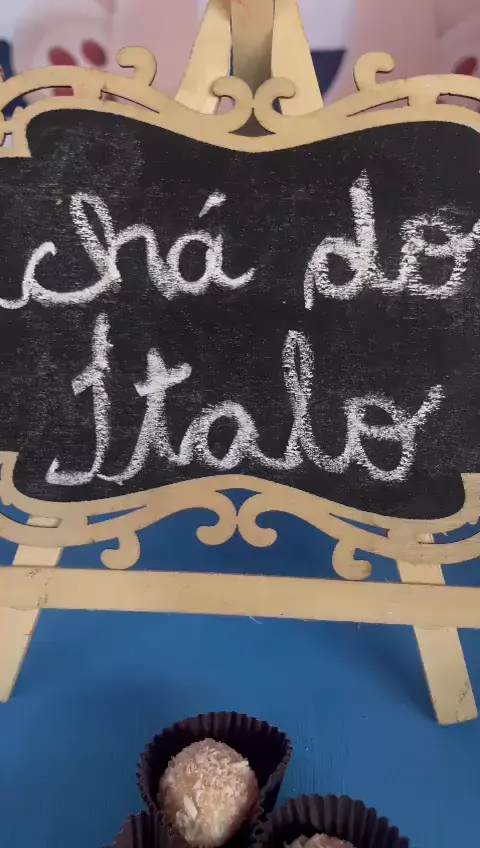 chá do
Ítalo